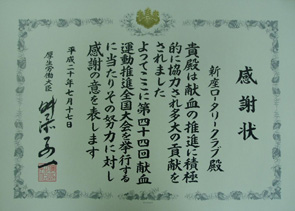 感謝状
新座ロータリークラブ殿
貴殿は献血の推進に積極
的に協力され多大の貢献を
されました
よってここに第四十四回献血
運動推進全国大会を挙行する
に当たりその努力に対し
感謝の意を表します
平成二十年七月十七日
厚生労働大臣